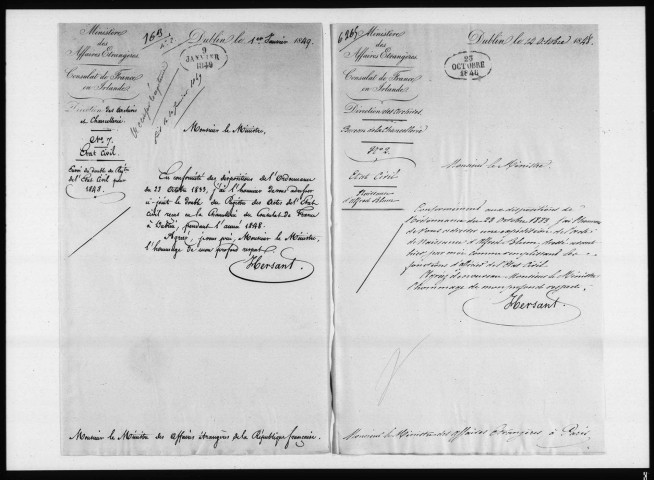 Ministère
des
Affaires Etrangères
Consulat de France
en Irlande
Direction des Archives
et Chancelleries
No. 7.
Etat Civil
Envoi du double du Régtre
de l'Etat Civil pour
1848.
163
Dublin le 1er Janvier 1849.
9
JANVIER
1849
Monsieur le Ministre,
En conformité des dispositions de l'Ordonnance
du 23 Octobre 1833, j'ai l'honneur de vous adresser
ci-joint le double du Régistre des Actes de l'Etat
Civil tenus en la Chancellerie du Consulat de France
à Dublin, pendant l'année 1848.
Agréez, je vous prie, Monsieur le Ministre,
l'hommage de mon profond respect.
Hersant.
Monsieur le Ministre des Affaires étrangères de la République française.
Ministère
des
Affaires Etrangères
Consulat de France
en Irlande
Direction des Archives
Bureau de la Chancellerie
No. 2.
Etat Civil
Naissance
d'Alfred Blum
Dublin le 22 Octobre 1848.
25
OCTOBRE
1848
Monsieur le Ministre
Conformément aux dispositions de
l'ordonnance du 23 Octobre 1833 j'ai l'honneur
de vous adresser une expédition de l'acte
de Naissance d'Alfred Blum, dressé
par moi comme remplissant les
fonctions d'officier de l'Etat Civil.
Agréez de nouveau Monsieur le Ministre
l'hommage de mon profond respect.
Hersant.
Monsieur le Ministre des Affaires Etrangères à Paris.